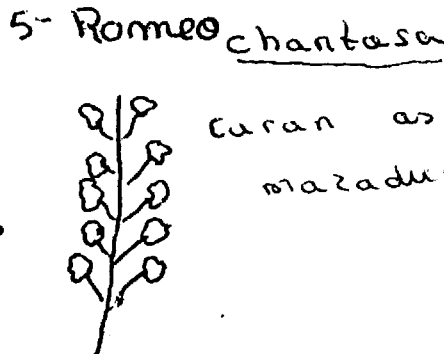 5- Romeo chantasa
curan as
mazadu